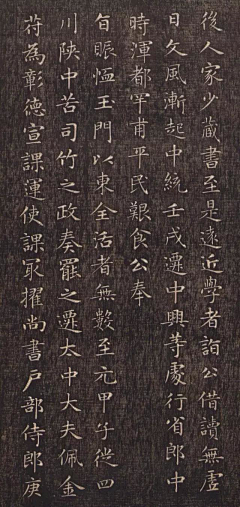 後人家少藏書至是遠近學者詣公借讀無虛
日文風漸起中統壬戌遷中興等處行省郎中
時渾都罕甫平民艱食公奉
旨賑恤玉門以東全活者無數至元甲子從四
川陝中苦司竹之政奏罷之遷太中大夫佩金
苻為彰德宣課運使課冣擢尚書戶部侍郎庚